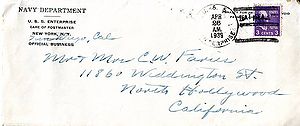 NAVY DEPARTMENT
U. S. S. ENTERPRISE
CARE OF POSTMASTER
NEW YORK, N.Y.
San Diego, Cal
OFFICIAL BUSINESS
APR
26
AM
1939
3 CENTS 3
Mr & Mrs C. W. Faries
11860 Weddington St.
North Hollywood
California